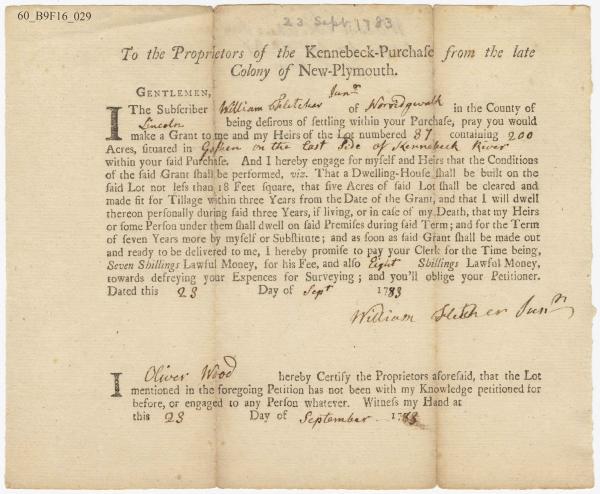 60_B9F16_029
23 Sept. 1783
To the Proprietors of the Kennebeck-Purchaſe from the late
Colony of New-Plymouth.
GENTLEMEN,
The Subſcriber William Fletcher Junr of Norridgwalk in the County of
Lincoln being deſirous of ſettling within your Purchaſe, pray you would
make a Grant to me and my Heirs of the Lot numbered 87 containing 200
Acres, ſituated in Goſhen on the East Side of Kennebeck River
within your ſaid Purchaſe. And I hereby engage for myſelf and Heirs that the Conditions
of the ſaid Grant ſhall be performed, viz. That a Dwelling-Houſe ſhall be built on the
ſaid Lot not leſs than 18 Feet ſquare, that five Acres of ſaid Lot ſhall be cleared and
made fit for Tillage within three Years from the Date of the Grant, and that I will dwell
thereon perſonally during ſaid three Years, if living, or in caſe of my Death, that my Heirs
or ſome Perſon under them ſhall dwell on ſaid Premiſes during ſaid Term; and for the Term
of ſeven Years more by myſelf or Subſtitute; and as ſoon as ſaid Grant ſhall be made out
and ready to be delivered to me, I hereby promiſe to pay your Clerk for the Time being,
Seven Shillings Lawful Money, for his Fee, and alſo Eight Shillings Lawful Money,
towards defreying your Expences for Surveying; and you'll oblige your Petitioner.
Dated this 23 Day of Sept 1783
William Fletcher Junr
I Oliver Wood hereby Certify the Proprietors aforeſaid, that the Lot
mentioned in the foregoing Petition has not been with my Knowledge petitioned for
before, or engaged to any Perſon whatever. Witneſs my Hand at
this 23 Day of September 1783